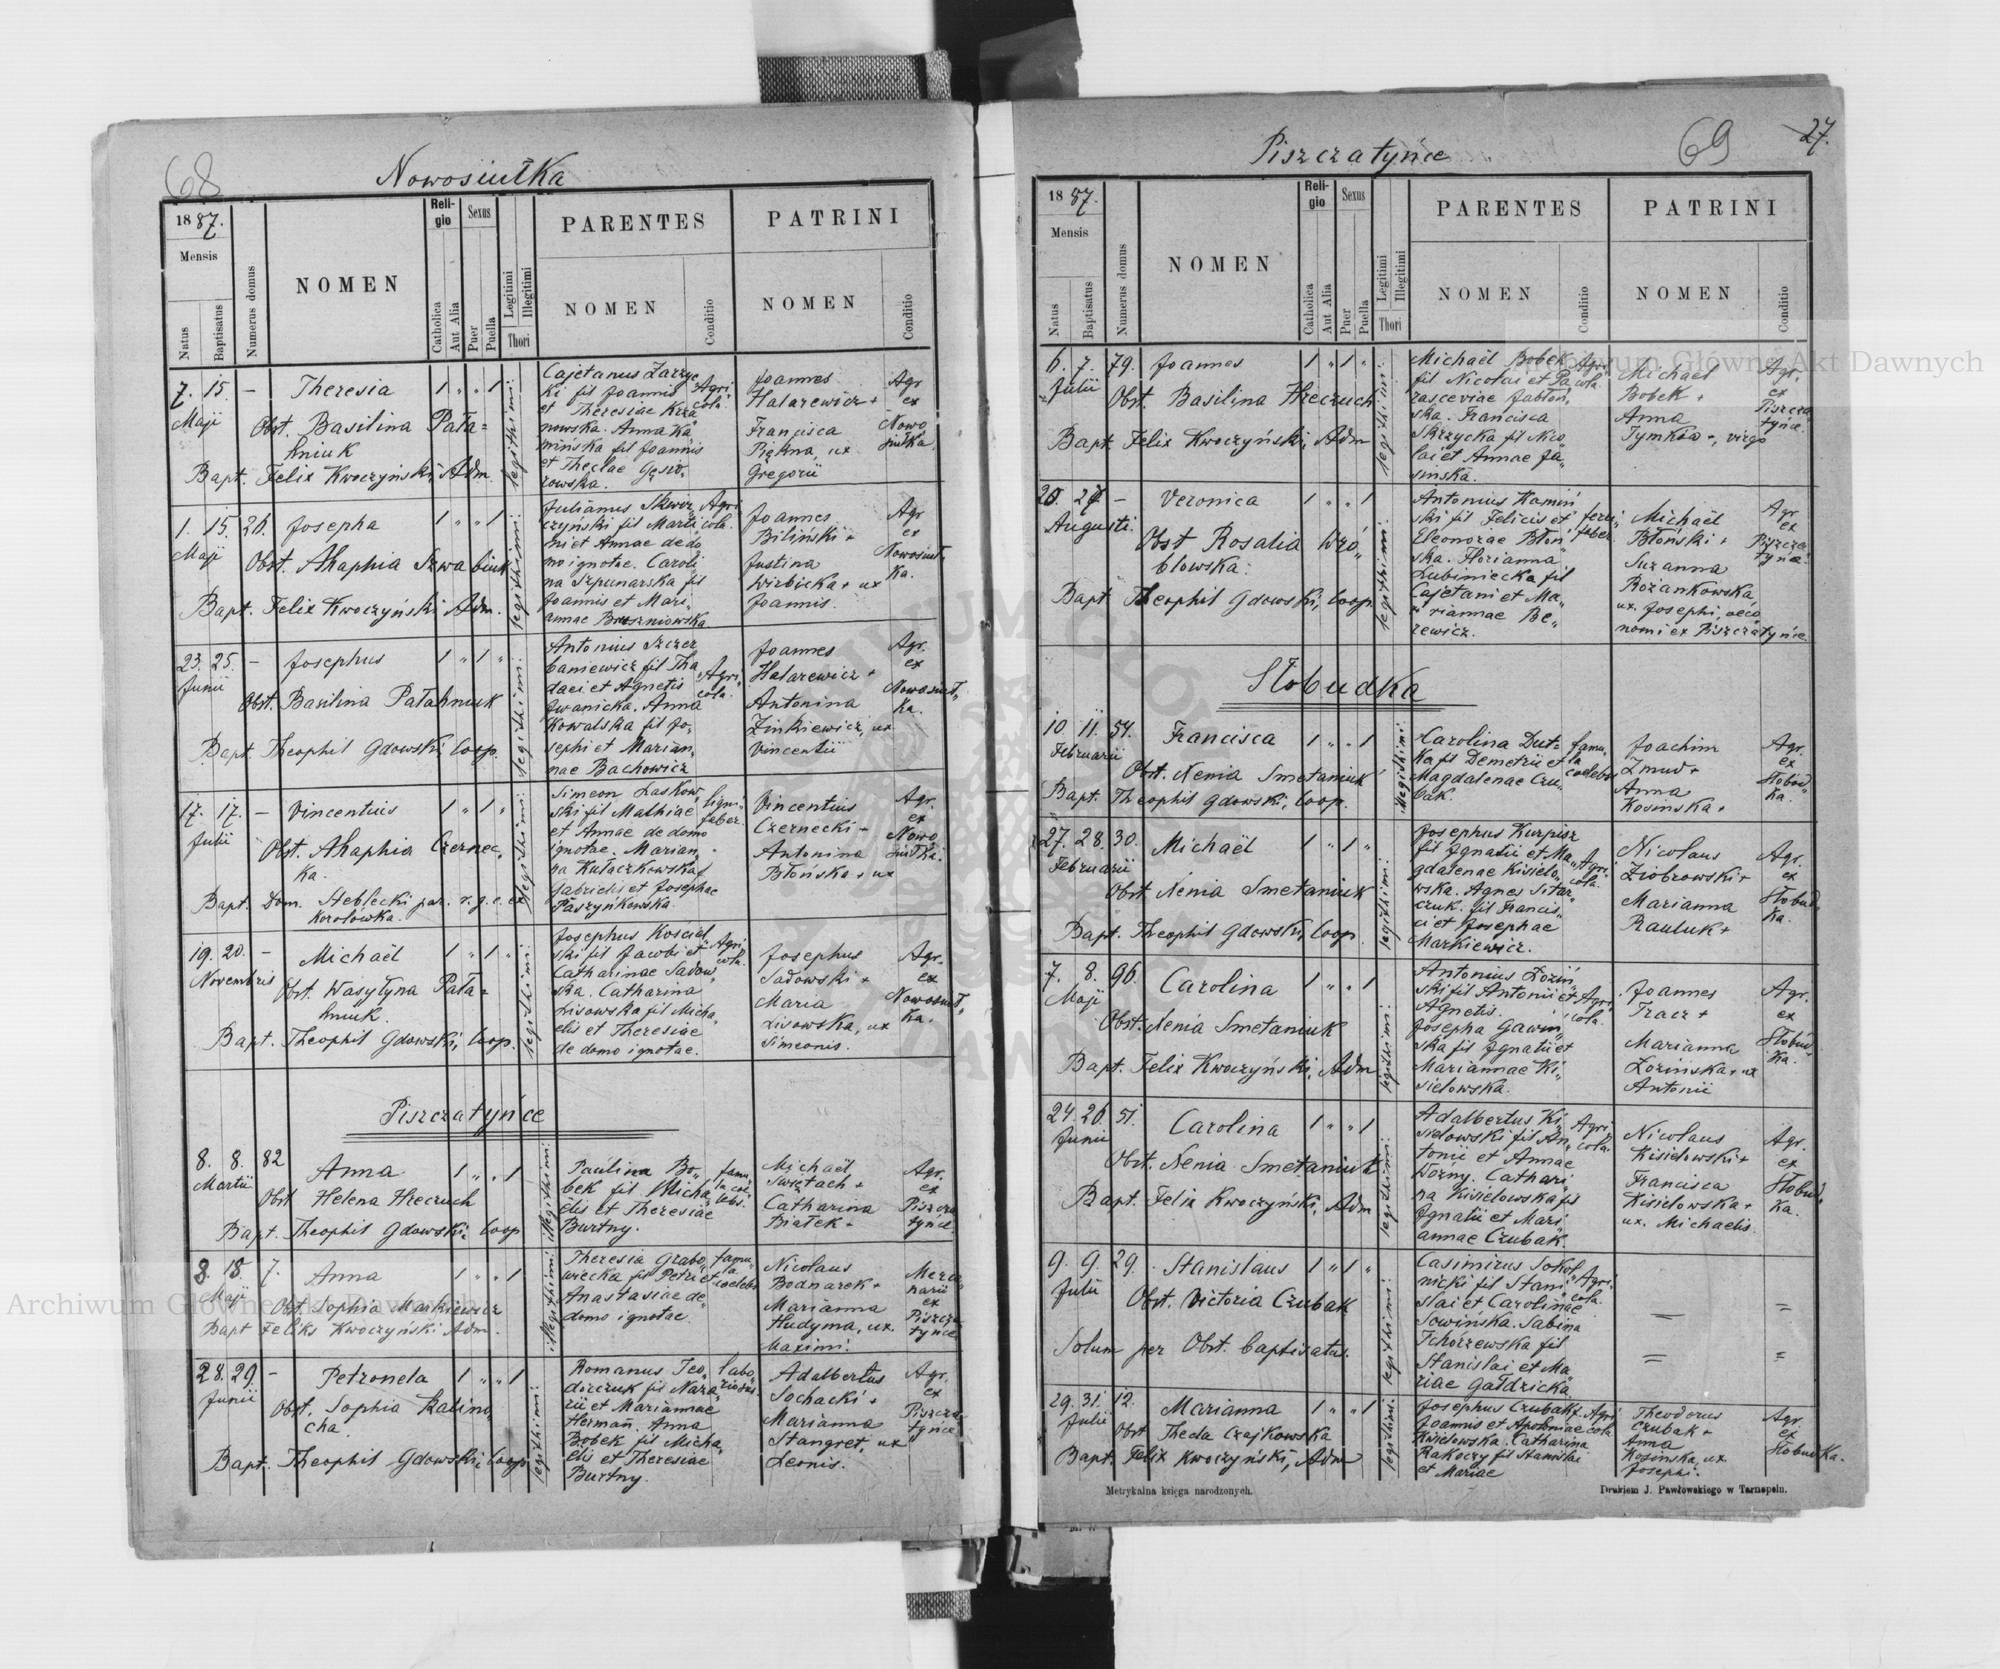 68
Nowosiułka
1887.
Mensis
Natus
Baptisatus
Numerus domus
NOMEN
Religio
Catholica
Aut Alia
Sexus
Puer
Puella
Legitimi
Illegitimi
Thori
PARENTES
NOMEN
Conditio
PATRINI
NOMEN
Conditio
7. 15. — Theresia 1 " " 1
Maji
Obst. Basilina Pała=
hniuk
Bapt. Felix Kwoczyński, Adm.
legithimi:
Cajetanus Zarzyc
ki fil Joannis
et Theresiae Krza
nowska. Anna Ka
mińska fil Joannis
et Theclae Gęsio
rowska.
Agri
cola.
Joannes
Halarewicz +
Francisca
Piękna, ux
Gregorii
Agr
ex
Nowo
siułka
1. 15. 26. Josepha 1 " " 1
Maji
Obst. Ahaphia Szwabiuk
Bapt. Felix Kwoczyński, Adm.
legithimi:
Julianus Skwir
czyński fil Marti
ni et Annae de do
mo ignotae. Caroli
na Szpunarska fil
Joannis et Mari
annae Broszniowska
Agri
cola.
Joannes
Biliński +
Justina
Wirbicka + ux
Joannis.
Agr
ex
Nowosiuł
ka.
23. 25. — Josephus 1 " 1 "
Junii
Obst. Basilina Pałahniuk
Bapt. Theophil Gdowski, Coop.
legithimi:
Antonius Szczer
baniewicz fil Tha
daei et Agnetis
Iwanicka. Anna
Kowalska fil Jo
sephi et Marian
nae Bachowicz
Agri
cola.
Joannes
Halarewicz +
Antonina
Zinkiewicz, ux
Vincentii
Agr.
ex
Nowosiuł
ka.
17. 17. — Vincentius 1 " 1 "
Julii
Obst. Ahaphia Czernec
ka.
Bapt. Dom. Steblecki par. r. g. e. ex
Korolówka.
legithimi:
Simeon Laskow
ski fil Mathiae
et Annae de domo
ignotae. Marian
na Kułaczkowska f
Gabrielis et Josephae
Paszyńkowska.
ligni
faber.
Vincentius
Czernecki +
Antonina
Błońska + ux
Agr.
ex
Nowo
siułka.
19. 20. — Michaël 1 " 1 "
Novembris
Obst. Wasyłyna Pała=
hniuk.
Bapt. Theophil Gdowski, Coop.
legithimi:
Josephus Kościel
ski fil Jacobi et
Catharinae Sadow
ska. Catharina
Lisowska fil Micha
elis et Theresiae
de domo ignotae.
Agri
cola.
Josephus
Sadowski +
Maria
Lisowska, ux
Simeonis.
Agr.
ex
Nowosiuł
ka.
Piszczatyńce
8. 8. 82 Anna 1 " " 1
Martii
Obst Helena Hreczuch
Bapt. Theophil Gdowski, Coop
illegithimi:
Paulina Bo
bek fil Micha
elis et Theresiae
Burtny.
famu
la coe
lebs.
Michaël
Swsztach +
Catharina
Białek +
Agr.
ex
Piszcza
tyńce.
8. 18. 7. Anna 1 " " 1
Maji
Obst. Sophia Markiewicz
Bapt Feliks Kwoczyński Adm.
illegithimi:
Theresia Grabo
wiecka fil Petri et
Anastasiae de
domo ignotae
famu
la
coelebs
Nicolaus
Bodnarek +
Marianna
Hudyma, ux.
Maximi.
Merce
narii
ex
Piszcza
tyńce
28. 29. — Petronela 1 " " 1
Junii
Obst. Sophia Kalino
cha.
Bapt. Theophil Gdowski, Coop
legithimi:
Romanus Teo
dorczuk fil Naza
rii et Mariannae
Hermań. Anna
Bobek fil Micha
elis et Theresiae
Burtny.
labo
riosus.
Adalbertus
Sochacki +
Marianna
Stangret, ux
Leonis.
Agr.
ex
Piszcza
tyńce
Piszczatyńce
69
27.
1887.
Mensis
Natus
Baptisatus
Numerus domus
NOMEN
Religio
Catholica
Aut Alia
Sexus
Puer
Puella
Legitimi
Illegitimi
Thori
PARENTES
NOMEN
Conditio
PATRINI
NOMEN
Conditio
6. 7. 79. Joannes 1 " 1 "
Julii
Obst. Basilina Hreczuch
Bapt. Felix Kwoczyński, Adm
legithimi:
Michaël Bobek
fil Nicolai et Pa
rasceviae Jabłoń
ska. Francisca
Skrzycka fil Nico
lai et Annae Ja
sińska.
Agri
cola.
Michael
Bobek +
Anna
Tymków +, virgo
Agr.
ex
Piszcza
tyńce.
20. 27. — Veronica 1 " " 1
Augusti.
Obst Rosalia Wró
blowska.
Bapt Theophil Gdowski, Coop.
legithimi:
Antonius Kamiń
ski fil Felicis et
Eleonorae Błoń
ska. Florianna
Lubiniecka fil
Cajetani et Ma
riannae Be
rewicz.
ferri
faber.
Michaël
Błoński +
Suzanna
Rożankowska
ux. Josephi, oeco
nomi ex Piszczatyńce
Agr
ex
Piszcza
tyńce.
Słobudka
10. 11. 54. Francisca 1 " " 1
Februarii
Obst. Nenia Smetaniuk
Bapt. Theophil Gdowski, Coop.
illegithimi:
Carolina Dut=
ka fil Demetrii et
Magdalenae Czu
bak.
famu
la
coelebs
Joachim
Żmud +
Anna
Kosińska +
Agr.
ex
Słobud
ka.
27. 28. 30. Michaël 1 " 1 "
Februarii
Obst Nenia Smetaniuk
Bapt. Theophil Gdowski, Coop
legithimi:
Josephus Kurpisz
fil Ignatii et Ma
gdalenae Kisielo
wska. Agnes Sitar
czuk. fil Francis
ci et Josephae
Markiewicz.
Agri
cola.
Nicolaus
Ziobrowski +
Marianna
Rauluk +
Agr.
ex
Słobud
ka.
7. 8. 96. Carolina 1 " " 1
Maji
Obst. Nenia Smetaniuk
Bapt. Felix Kwoczyński, Adm
legithimi:
Antonius Łoziń
ski fil Antonii et
Agnetis.
Josepha Gawiń
ska fil Ignatii et
Mariannae Ki
sielowska.
Agri
cola.
Joannes
Tracz +
Marianna
Łozińska + ux
Antonii
Agr.
ex
Słobud
ka.
24. 26. 51. Carolina 1 " " 1
Junii
Obst. Nenia Smetaniuk
Bapt. Felix Kwoczyński, Adm
legithimi:
Adalbertus Ki
sielowski fil An
tonii et Annae
Woźny. Cathari
na Kisielowska fil
Ignatii et Mari
annae Czubak.
Agri
cola.
Nicolaus
Kisielowski +
Francisca
Kisielowska +
ux. Michaelis
Agr.
ex
Słobud
ka.
9. 9. 29. Stanislaus 1 " 1 "
Julii
Obst. Victoria Czubak
Solum per Obst. baptisatus.
legithimi:
Casimirus Sokol
nicki fil Stani
slai et Carolinae
Sowińska. Sabina
Tchórzewska fil
Stanislai et Ma
riae Gałdzicka
Agri
cola.
29. 31. 12. Marianna 1 " " 1
Julii
Obst Thecla Czajkowska
Bapt. Felix Kwoczyński, Adm
legithimi:
Josephus Czubak f.
Joannis et Apoloniae
Kisielowska. Catharina
Rakoczy fil Stanislai
et Mariae
Agri
cola.
Theodorus
Czubak +
Anna
Kosińska, ux
Josephi.
Agr.
ex
Słobudka.
Metrykalna księga narodzonych.
Drukiem J. Pawłowskiego w Tarnopolu.
Archiwum Główne Akt Dawnych
Archiwum Główne Akt Dawnych